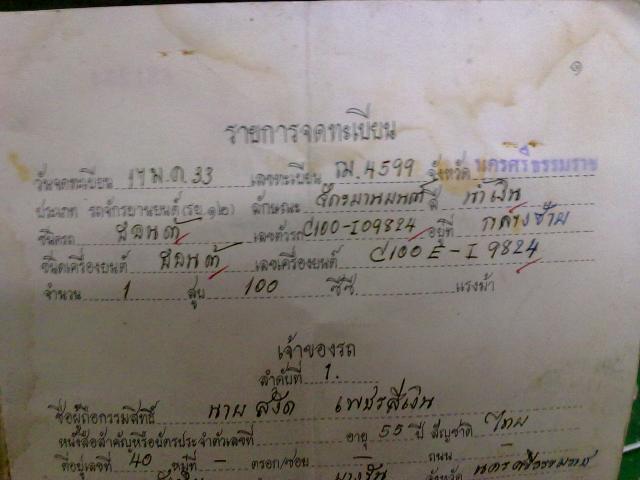 ๑
รายการจดทะเบียน
วันจดทะเบียน 17 ม.ค. 33 เลขทะเบียน 4599 จังหวัด นครศรีธรรมราช
ประเภท รถจักรยานยนต์ (รย.๑๒) ลักษณะ จักรยานยนต์ สี น้ำเงิน
ชนิดรถ ฮอนด้า เลขตัวรถ C100-I09824 อยู่ที่ กลางซ้าย
ชนิดเครื่องยนต์ ฮอนด้า เลขเครื่องยนต์ C100E-I 9824
จำนวน 1 สูบ 100 ซีซี แรงม้า
เจ้าของรถ
ลำดับที่ 1.
ชื่อผู้ถือกรรมสิทธิ์ นาย สงัด เพชรสีเงิน
หนังสือสำคัญหรือบัตรประจำตัวเลขที่ อายุ 55 ปี สัญชาติ ไทย
ที่อยู่เลขที่ 40 หมู่ที่ - ตรอก/ซอย - ถนน -
จังหวัด นครศรีธรรมราช